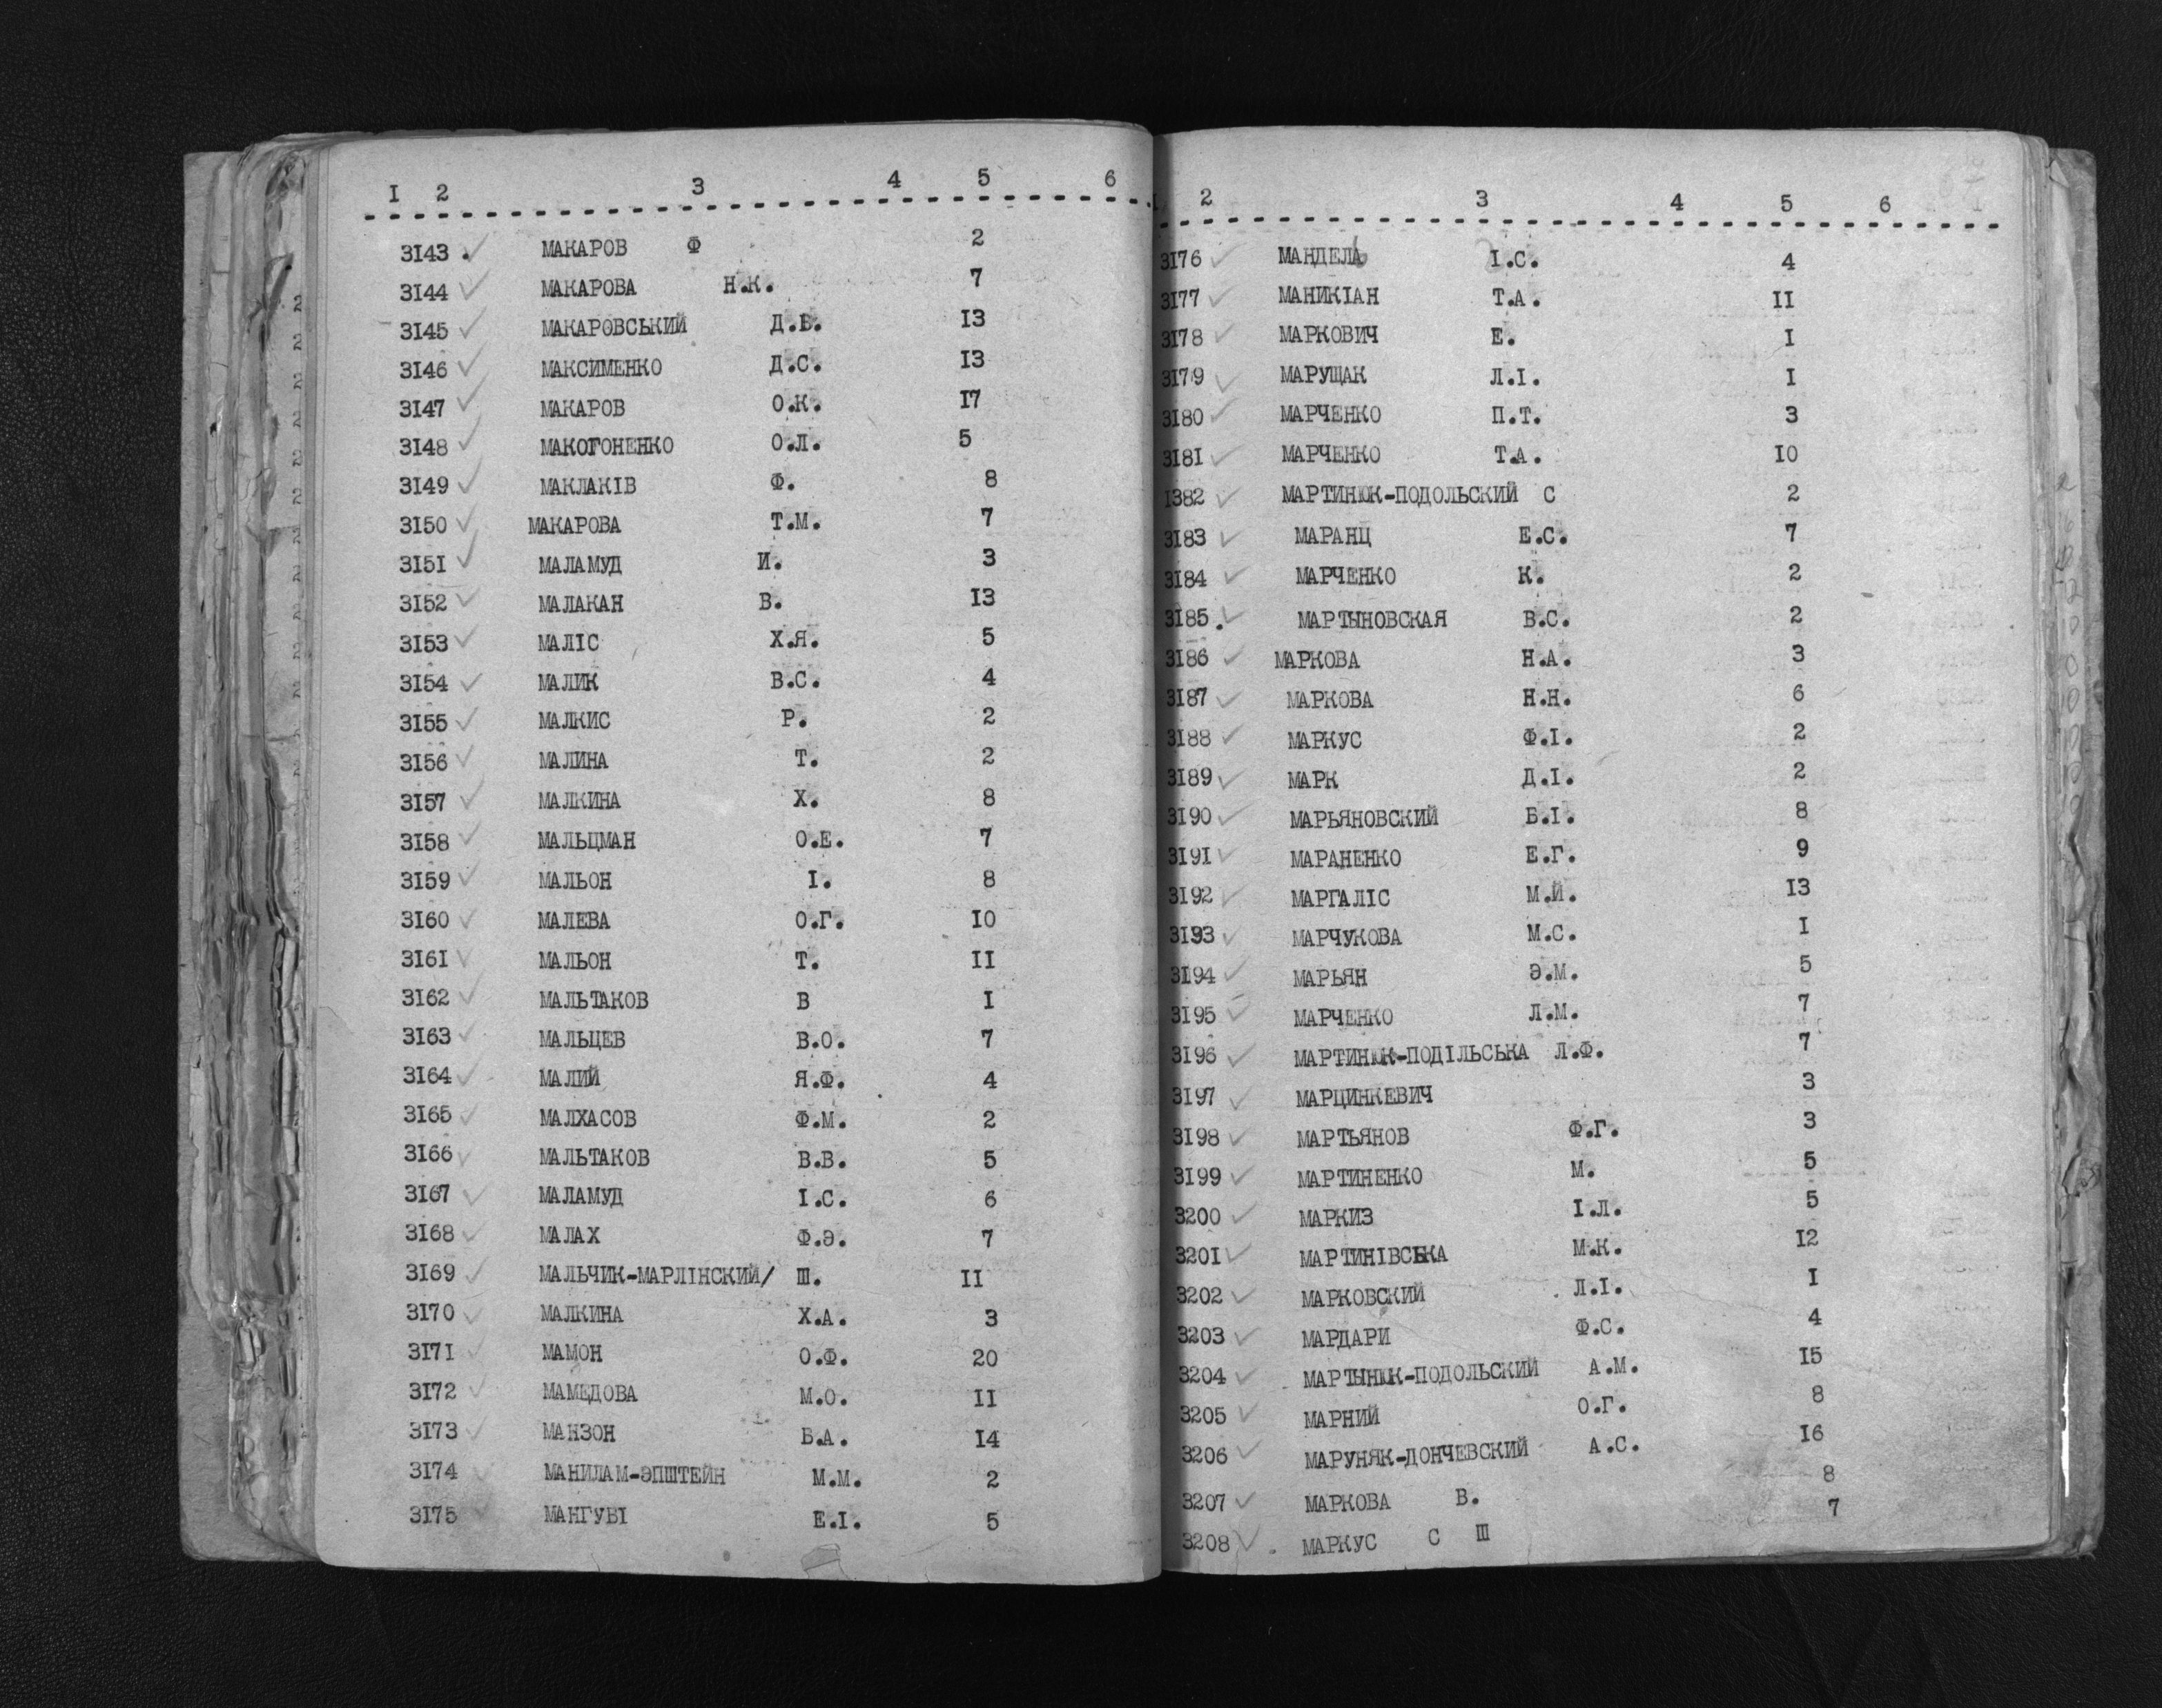 I 2 3 4 5 6
3I43. МАКАРОВ Ф 2
3I44 МАКАРОВА Н.К. 7
3I45 МАКАРОВСЬКИЙ Д.В. I3
3I46 МАКСИМЕНКО Д.С. I3
3I47 МАКАРОВ О.К. I7
3I48 МАКОГОНЕНКО О.Л. 5
3I49 МАКЛАКІВ Ф. 8
3I50 МАКАРОВА Т.М. 7
3I5I МАЛАМУД И. 3
3I52 МАЛАКАН В. I3
3I53 МАЛІС Х.Я. 5
3I54 МАЛИК В.С. 4
3I55 МАЛКИС Р. 2
3I56 МАЛИНА Т. 2
3I57 МАЛКИНА Х. 8
3I58 МАЛЬЦМАН О.Е. 7
3I59 МАЛЬОН І. 8
3I60 МАЛЕВА О.Г. I0
3I6I МАЛЬОН Т. II
3I62 МАЛЬТАКОВ В I
3I63 МАЛЬЦЕВ В.О. 7
3I64 МАЛИЙ Я.Ф. 4
3I65 МАЛХАСОВ Ф.М. 2
3I66 МАЛЬТАКОВ В.В. 5
3I67 МАЛАМУД І.С. 6
3I68 МАЛАХ Ф.Э. 7
3I69 МАЛЬЧИК-МАРЛІНСКИЙ/ Ш. II
3I70 МАЛКИНА Х.А. 3
3I7I МАМОН О.Ф. 20
3I72 МАМЕДОВА М.О. II
3I73 МАНЗОН Б.А. I4
3I74 МАНИЛАМ-ЭПШТЕЙН М.М. 2
3I75 МАНГУВІ Е.І. 5
2 3 4 5 6
3I76 МАНДЕЛЬ І.С. 4
3I77 МАНИКІАН Т.А. II
3I78 МАРКОВИЧ Е. I
3I79 МАРУЩАК Л.І. I
3I80 МАРЧЕНКО П.Т. 3
3I8I МАРЧЕНКО Т.А. I0
I382 МАРТИНЮК-ПОДОЛЬСКИЙ С 2
3I83 МАРАНЦ Е.С. 7
3I84 МАРЧЕНКО К. 2
3I85. МАРТЫНОВСКАЯ В.С. 2
3I86 МАРКОВА Н.А. 3
3I87 МАРКОВА Н.Н. 6
3I88 МАРКУС Ф.І. 2
3I89 МАРК Д.І. 2
3I90 МАРЬЯНОВСКИЙ Б.І. 8
3I9I МАРАНЕНКО Е.Г. 9
3I92 МАРГАЛІС М.Й. I3
3I93 МАРЧУКОВА М.С. I
3I94 МАРЬЯН Э.М. 5
3I95 МАРЧЕНКО Л.М. 7
3I96 МАРТИНЮК-ПОДІЛЬСЬКА Л.Ф. 7
3I97 МАРЦИНКЕВИЧ 3
3I98 МАРТЬЯНОВ Ф.Г. 3
3I99 МАРТИНЕНКО М. 5
3200 МАРКИЗ І.Л. 5
320I МАРТИНІВСЬКА М.К. I2
3202 МАРКОВСКИЙ Л.І. I
3203 МАРДАРИ Ф.С. 4
3204 МАРТЫНЮК-ПОДОЛЬСКИЙ А.М. I5
3205 МАРНИЙ О.Г. 8
3206 МАРУНЯК-ДОНЧЕВСКИЙ А.С. I6
3207 МАРКОВА В. 8
3208 МАРКУС С Ш 7